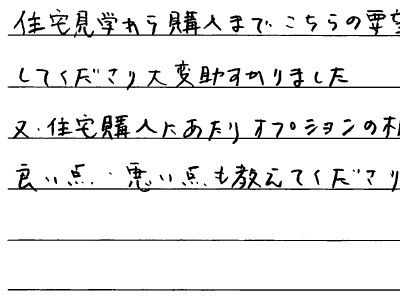 住宅見学から購入まで、こちらの要望
してくださり大変助すかりました
又、住宅購入にあたりオプションの
良い点、悪い点も教えてくださり